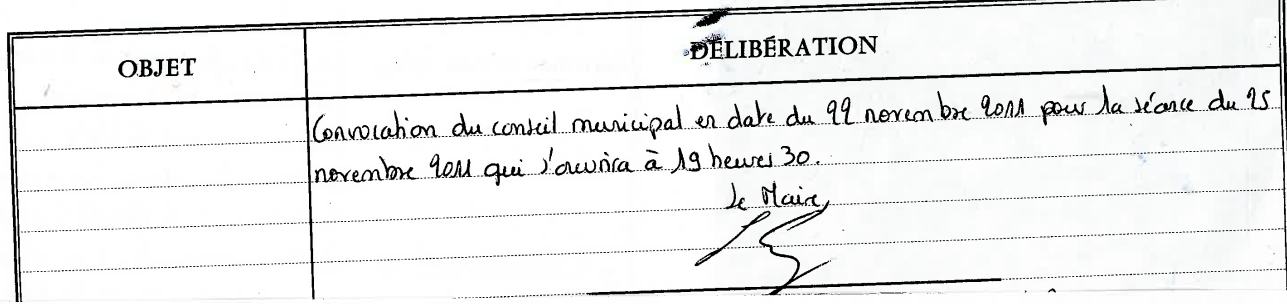 OBJET
DÉLIBÉRATION
Convocation du conseil municipal en date du 22 novembre 2011 pour la séance du 25
novembre 2011 qui s'ouvrira à 19 heures 30.
Le Maire,